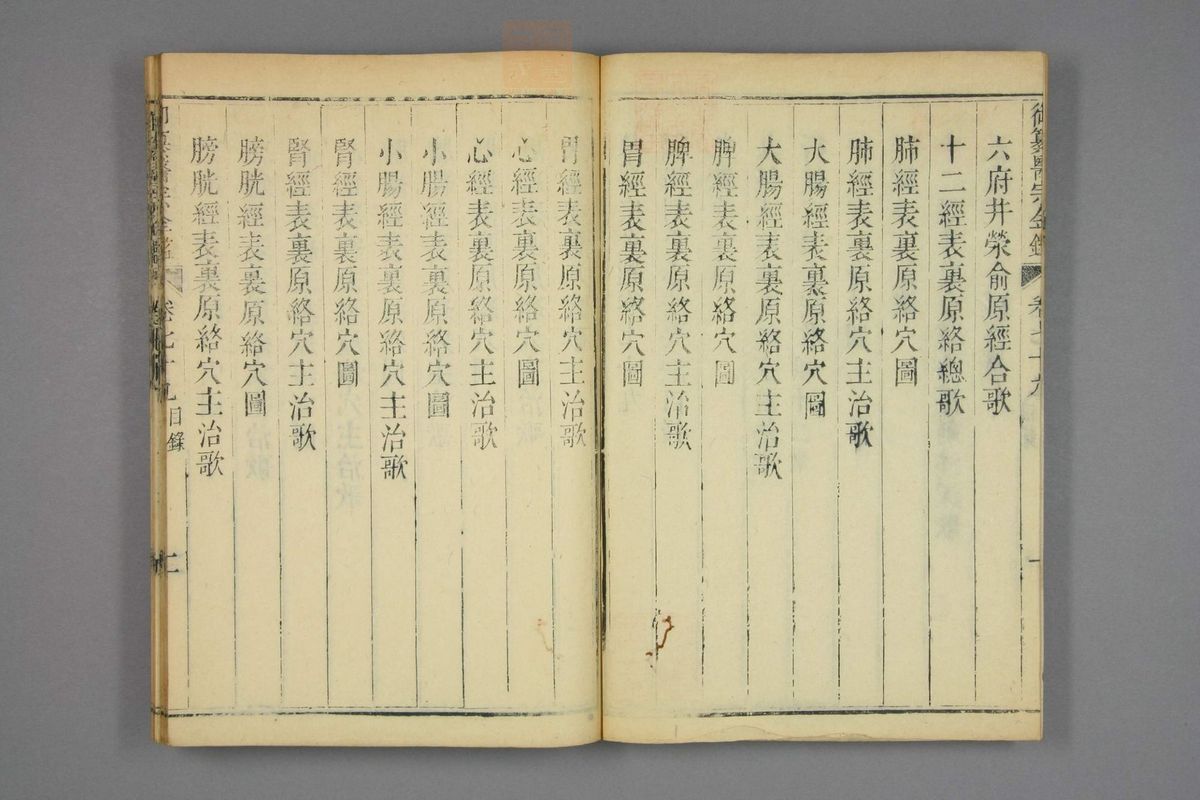 六府井滎俞原經合歌
十二經表裏原絡總歌
肺經表裏原絡穴圖
肺經表裏原絡穴主治歌
大腸經表裏原絡穴圖
大腸經表裏原絡穴主治歌
脾經表裏原絡穴圖
脾經表裏原絡穴主治歌
胃經表裏原絡穴圖
胃經表裏原絡穴主治歌
心經表裏原絡穴圖
心經表裏原絡穴主治歌
小腸經表裏原絡穴圖
小腸經表裏原絡穴主治歌
腎經表裏原絡穴圖
腎經表裏原絡穴主治歌
膀胱經表裏原絡穴圖
膀胱經表裏原絡穴主治歌
卷七十九 目錄 二